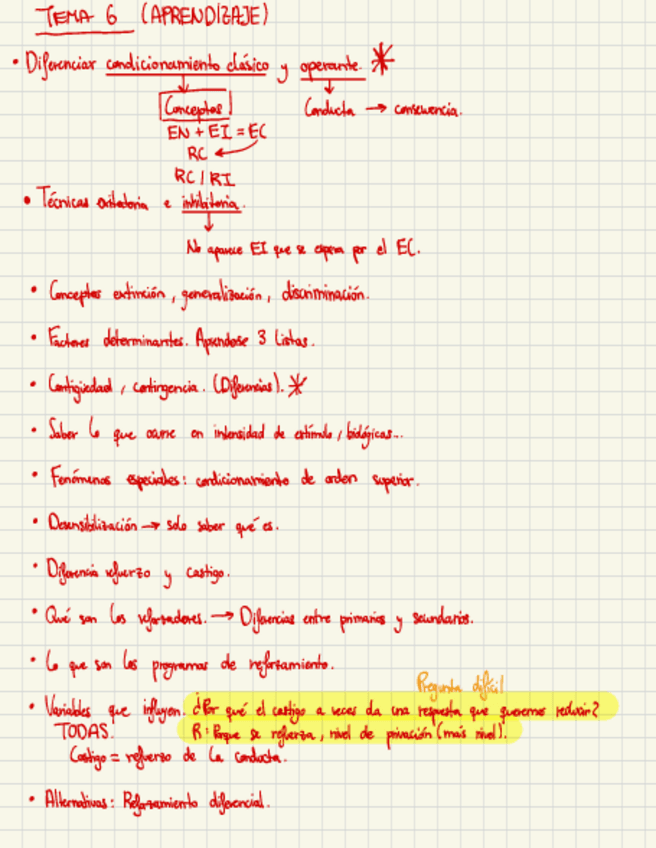 TEMA 6 (APRENDIZAJE)
• Diferenciar condicionamiento clásico y operante. *
Conceptos
Conducta → consecuencia.
EN + EI = EC
RC
RC / RI
• Técnicas exitatoria e inhibitoria.
No aparece EI que se espera por el EC.
• Conceptos extinción, generalización, discriminación.
• Factores determinantes. Aprendose 3 listas.
• Contigüedad, contingencia. (Diferencias). *
• Saber lo que ocurre en intensidad de estímulo, biológicas...
• Fenómenos especiales: condicionamiento de orden superior.
• Desensibilización → solo saber qué es.
• Diferencia refuerzo y castigo.
• Qué son los reforzadores. → Diferencias entre primarios y secundarios.
• Lo que son los programas de reforzamiento.
Pregunta difícil
• Variables que influyen. ¿Por qué el castigo a veces da una respuesta que queremos reducir?
TODAS. R: Porque se refuerza, nivel de privación (más nivel).
Castigo = refuerzo de la conducta.
• Alternativas: Reforzamiento diferencial.